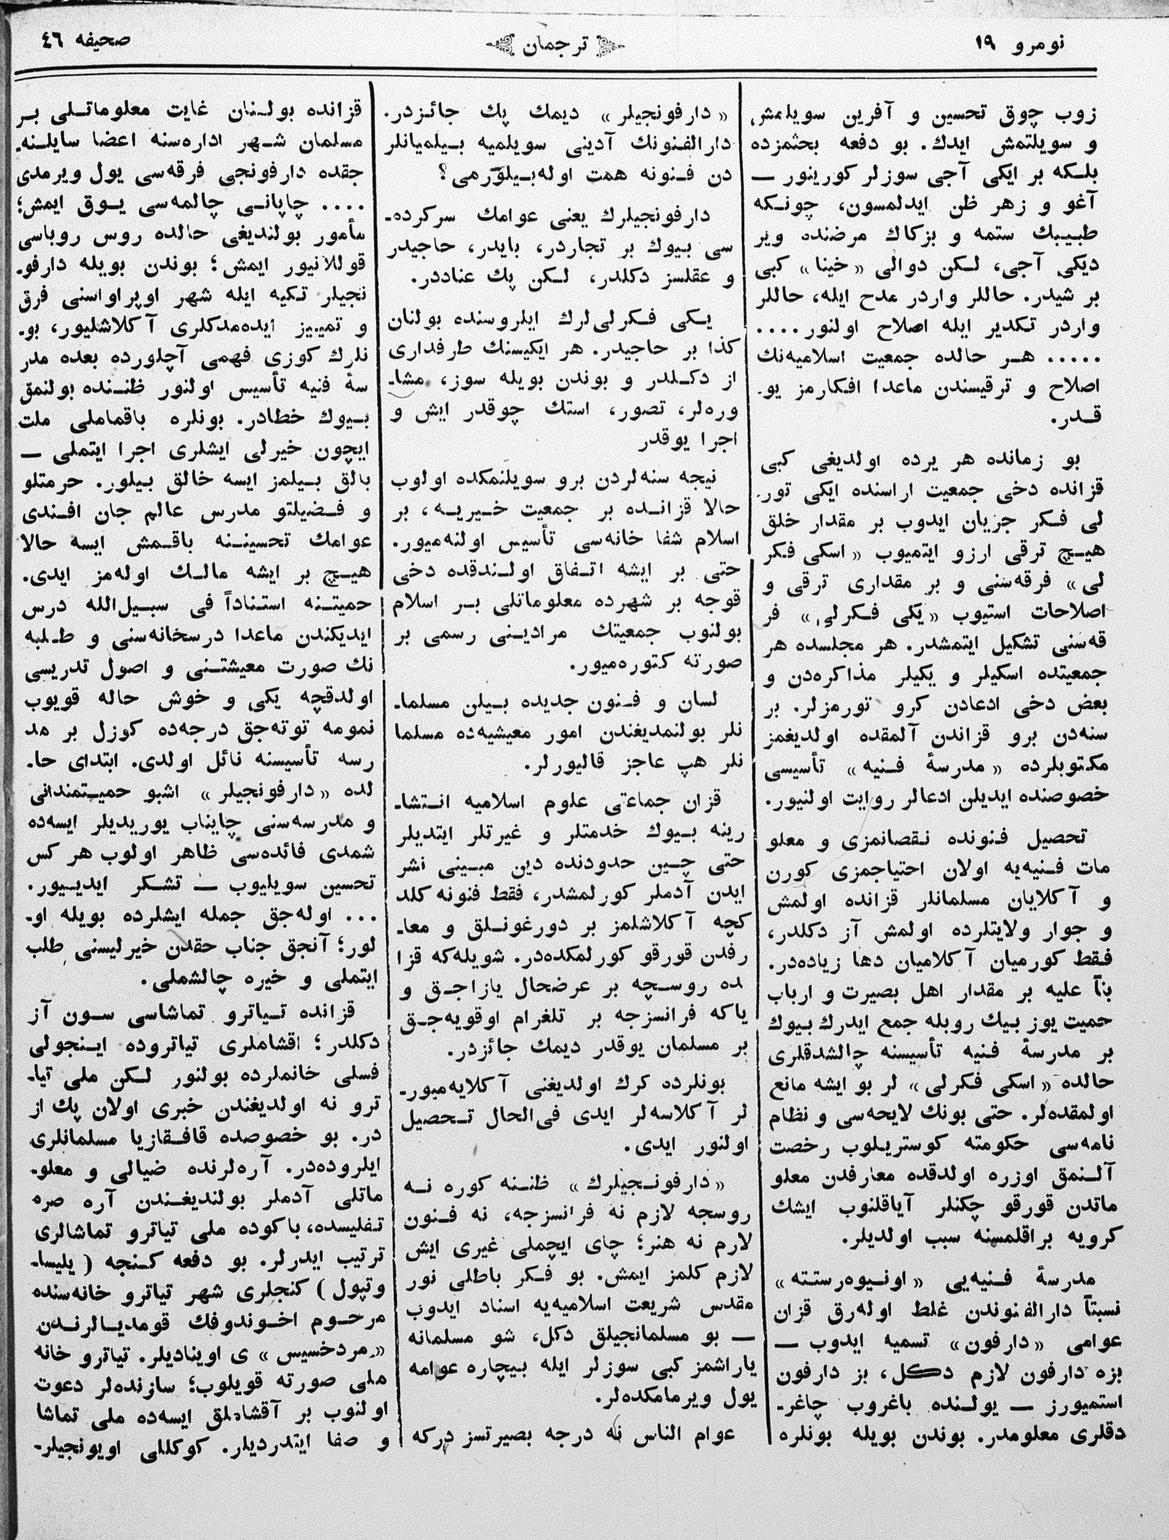 نومرو ۱۹
ترجمان
صحیفه ٤٦
زوب چوق تحسین و آفرین سویلمش
و سویلتمش ایدك. بو دفعه بحثمزده
بلکه بر ایکی آجی سوزلر کورینور —
آغو و زهر ظن ایدلمسون، چونکه
طبیبك ستمه و بزکاك مرضنده ویر
دیکی آجی، لکن دوالی «خینا» کبی
بر شیدر. حاللر واردر مدح ایله، حاللر
واردر تکدیر ایله اصلاح اولنور....
..... هر حالده جمعیت اسلامیه‌نك
اصلاح و ترقیسندن ماعدا افکارمز یو-
قدر.
بو زمانده هر یرده اولدیغی کبی
قزانده دخی جمعیت اراسنده ایکی تور-
لی فکر جریان ایدوب بر مقدار خلق
هیچ ترقی ارزو ایتمیوب «اسکی فکر
لی» فرقه‌سنی و بر مقداری ترقی و
اصلاحات استیوب «یکی فکرلی» فر
قه‌سنی تشکیل ایتمشدر. هر مجلسده هر
جمعیتده اسکیلر و یکیلر مذاکره‌دن و
بعض دخی ادعادن کرو تورمزلر. بر
سنه‌دن برو قزاندن آلمقده اولدیغمز
مکتوبلرده «مدرسهٔ فنیه» تأسیسی
خصوصنده ایدیلن ادعالر روایت اولنیور.
تحصیل فنونده نقصانمزی و معلو
مات فنیه‌یه اولان احتیاجمزی کورن
و آکلایان مسلمانلر قزانده اولمش
و جوار ولایتلرده اولمش آز دکلدر،
فقط کورمیان آکلامیان دها زیاده‌در.
بناً علیه بر مقدار اهل بصیرت و ارباب
حمیت یوز بیك روبله جمع ایدرك بیوك
بر مدرسهٔ فنیه تأسیسنه چالشدقلری
حالده «اسکی فکرلی» لر بو ایشه مانع
اولمقده‌لر. حتی بونك لایحه‌سی و نظام
نامه‌سی حکومته کوستریلوب رخصت
آلنمق اوزره اولدقده معارفدن معلو
ماتدن قورقو چکنلر آیاقلنوب ایشك
کرویه براقلمسنه سبب اولدیلر.
مدرسهٔ فنیه‌یی «اونیوه‌رستته»
نسبتاً دارالفنوندن غلط اوله‌رق قزان
عوامی «دارفون» تسمیه ایدوب —
بزه دارفون لازم دکل، بز دارفون
استمیورز — یولنده باغروب چاغر-
دقلری معلومدر. بوندن بویله بونلره
«دارفونجیلر» دیمك پك جائزدر.
دارالفنونك آدینی سویلمیه بیلمیانلر
دن فنونه همت اوله‌بیلورمی؟
دارفونجیلرك یعنی عوامك سرکرده-
سی بیوك بر تجاردر، بایدر، حاجیدر
و عقلسز دکلدر، لکن پك عناددر.
یکی فکرلی‌لرك ایلروسنده بولنان
کذا بر حاجیدر. هر ایکیسنك طرفداری
از دکلدر و بوندن بویله سوز، مشا-
وره‌لر، تصور، استك چوقدر ایش و
اجرا یوقدر
نیجه سنه‌لردن برو سویلنمکده اولوب
حالا قزانده بر جمعیت خیریه، بر
اسلام شفا خانه‌سی تأسیس اولنه‌میور.
حتی بر ایشه اتفاق اولندقده دخی
قوجه بر شهرده معلوماتلی بر اسلام
بولنوب جمعیتك مرادینی رسمی بر
صورته کتوره‌میور.
لسان و فنون جدیده بیلن مسلما-
نلر بولنمدیغندن امور معیشیه‌ده مسلما
نلر هپ عاجز قالیورلر.
قزان جماعتی علوم اسلامیه انتشا-
رینه بیوك خدمتلر و غیرتلر ایتدیلر
حتی چین حدودنده دین مبینی نشر
ایدن آدملر کورلمشدر، فقط فنونه کلد
کچه آکلاشلمز بر دورغونلق و معا-
رفدن قورقو کورلمکده‌در. شویله‌که قزا
نده روسچه بر عرضحال یازاجق و
یاکه فرانسزجه بر تلغرام اوقویه‌جق
بر مسلمان یوقدر دیمك جائزدر.
بونلرده کرك اولدیغنی آکلایه‌میور-
لر آکلاسه‌لر ایدی فی‌الحال تحصیل
اولنور ایدی.
«دارفونجیلرك» ظننه کوره نه
روسجه لازم نه فرانسزجه، نه فنون
لازم نه هنر؛ چای ایچملی غیری ایش
لازم کلمز ایمش. بو فکر باطلی نور
مقدس شریعت اسلامیه‌یه اسناد ایدوب
— بو مسلمانجیلق دکل، شو مسلمانه
یاراشمز کبی سوزلر ایله بیچاره عوامه
یول ویرمامکده‌لر.
عوام الناس نه درجه بصیرتسز درکه
قزانده بولنان غایت معلوماتلی بر
مسلمان شهر اداره‌سنه اعضا سایلنه-
جقده دارفونجی فرقه‌سی یول ویرمدی
.... چاپانی چالمه‌سی یوق ایمش؛
مأمور بولندیغی حالده روس روباسی
قوللانیور ایمش؛ بوندن بویله دارفو-
نجیلر تکیه ایله شهر اوپراواسنی فرق
و تمییز ایده‌مدکلری آکلاشلیور، بو-
نلرك کوزی فهمی آچلورده بعده مدر
سهٔ فنیه تأسیس اولنور ظننده بولنمق
بیوك خطادر. بونلره باقماملی ملت
ایچون خیرلی ایشلری اجرا ایتملی —
بالق بیلمز ایسه خالق بیلور. حرمتلو
و فضیلتو مدرس عالم جان افندی
عوامك تحسیننه باقمش ایسه حالا
هیچ بر ایشه مالك اوله‌مز ایدی.
حمیتنه استناداً فی سبیل‌الله درس
ایدیکندن ماعدا درسخانه‌سنی و طلبه
نك صورت معیشتنی و اصول تدریسی
اولدقچه یکی و خوش حاله قویوب
نمومه توته‌جق درجه‌ده کوزل بر مد
رسه تأسیسنه نائل اولدی. ابتدای حا-
لده «دارفونجیلر» اشبو حمیتمندانی
و مدرسه‌سنی چایناب یوریدیلر ایسه‌ده
شمدی فائده‌سی ظاهر اولوب هر کس
تحسین سویلیوب — تشکر ایدییور.
... اوله‌جق جمله ایشلرده بویله او-
لور؛ آنجق جناب حقدن خیرلیسنی طلب
ایتملی و خیره چالشملی.
قزانده تیاترو تماشاسی سون آز
دکلدر؛ اقشاملری تیاتروده اینجولی
فسلی خانملرده بولنور لکن ملی تیا-
ترو نه اولدیغندن خبری اولان پك از
در. بو خصوصده قافقازیا مسلمانلری
ایلروده‌در. آره‌لرنده ضیالی و معلو-
ماتلی آدملر بولندیغندن آره صره
تفلیسده، باکوده ملی تیاترو تماشالری
ترتیب ایدرلر. بو دفعه کنجه (یلیسا-
وتپول) کنجلری شهر تیاترو خانه‌سنده
مرحوم اخوندوفك قومدیالرندن
«مردخسیس» ی اوینادیلر. تیاترو خانه
ملی صورته قویلوب؛ سازنده‌لر دعوت
اولنوب بر آقشاملق ایسه‌ده ملی تماشا
و صفا ایتدردیلر. کوکللی اویونجیلر-